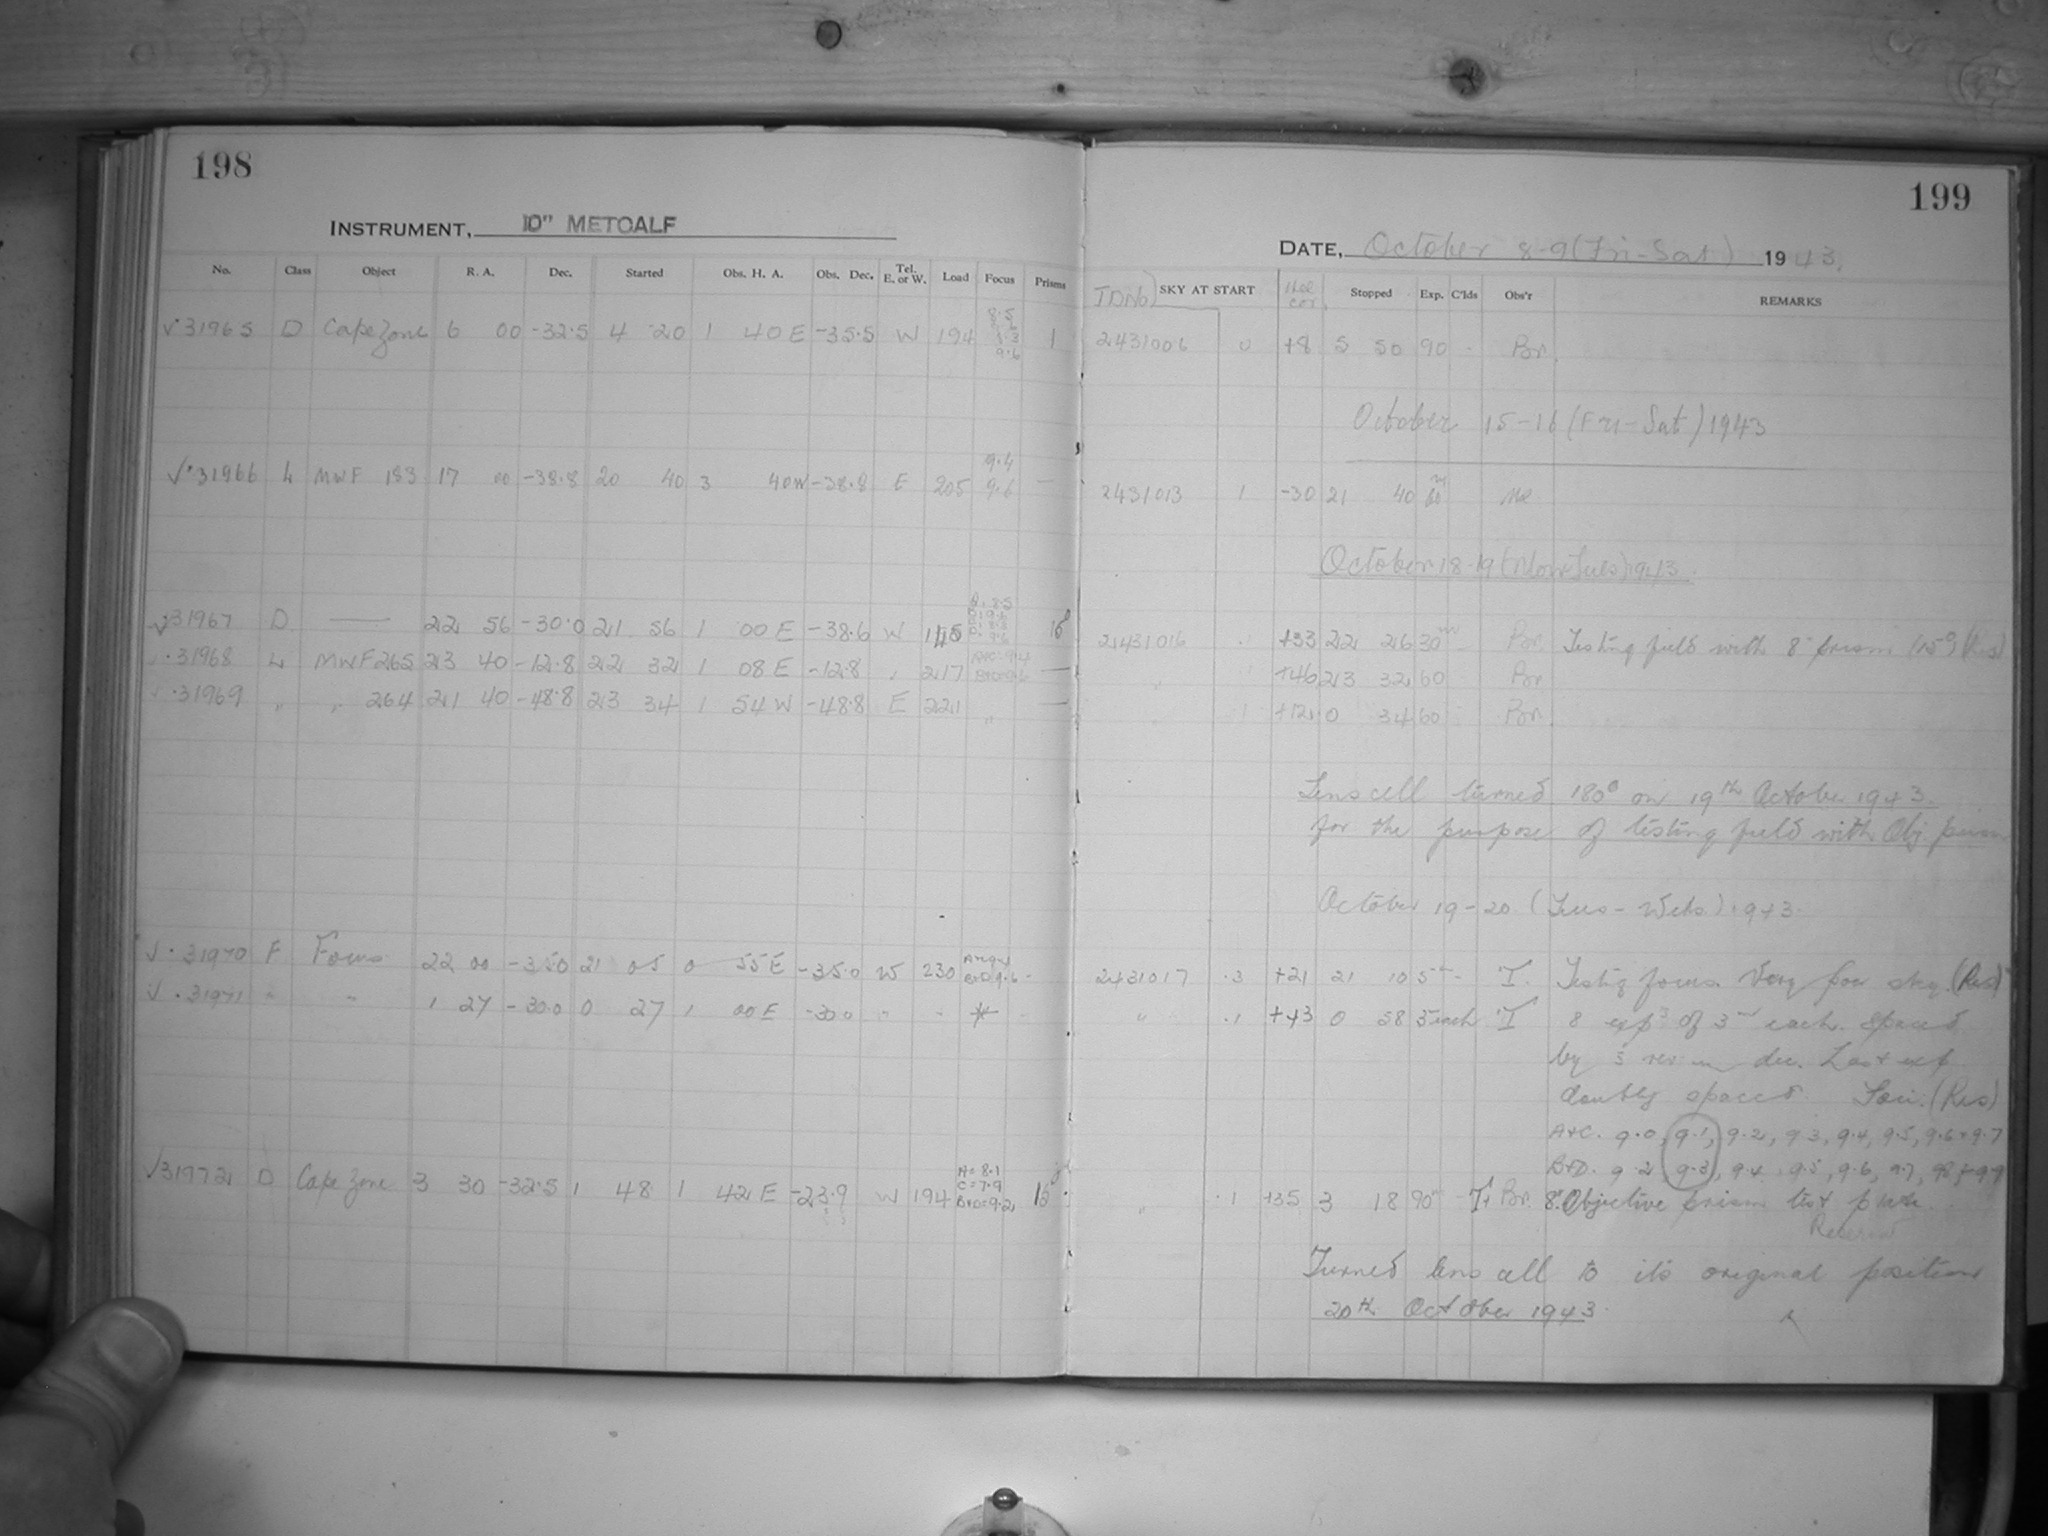 198
INSTRUMENT, 10" METCALF
No. Class Object R. A. Dec. Started Obs. H. A. Obs. Dec. Tel. E. or W. Load Focus Prisms
31965 D Cape Zone 6 00 -32.5 4 20 1 40 E -35.5 W 194 9.6 1
31966 L MWF 183 17 00 -38.8 20 40 3 40 W -38.8 E 205 9.4 9.6 —
31967 D — 22 56 -30.0 21 56 1 00 E -38.6 W 145
31968 L MWF 265 23 40 -12.8 22 32 1 08 E -12.8 " 217 A+C=9.4 B+D=9.6 —
31969 " " 264 21 40 -48.8 23 34 1 54 W -48.8 E 221 " —
31970 F Focus 22 00 -35.0 21 05 0 55 E -35.0 W 230 B+D 9.6 -
31971 " " 1 27 -30.0 0 27 1 00 E -30.0 " " * -
31972 D Cape Zone 3 30 -32.5 1 48 1 42 E -23.9 W 194 A=8.1 C=7.9 B+D=9.2 15°
199
DATE, October 8-9 (Fri-Sat) 1943.
SKY AT START Stopped Exp. C'lds Obs'r REMARKS
2431006 0 +8 5 50 90 - Br.
October 15-16 (Fri-Sat) 1943
2431013 1 -30 21 40 60
October 18-19 (Mon-Tues) 1943.
2431016 .1 +33 22 26 30m - Br. Testing field with 8" prism (15°) (Res)
" " +46 23 32 60 Br.
" .1 +12 0 34 60 Br.
Lens cell turned 180° on 19th October 1943.
for the purpose of testing field with Obj. prism
October 19-20 (Tues-Weds) 1943.
2431017 .3 +21 21 10 5m - T. Testing focus. Very poor sky. (Res)
" .1 +43 0 58 3 each T 8 exps of 3m each. Spaced
by 3 rev in dec. Last exp
doubly spaced. Foci: (Res)
A+C. 9.0, 9.1, 9.2, 9.3, 9.4, 9.5, 9.6 + 9.7
B+D. 9.2, 9.3, 9.4, 9.5, 9.6, 9.7, 9.8 + 9.9
" .1 +35 3 18 90m - T+Br. 8" Objective prism test plate.
Reserved
Turned lens cell to its original position
20th October 1943.